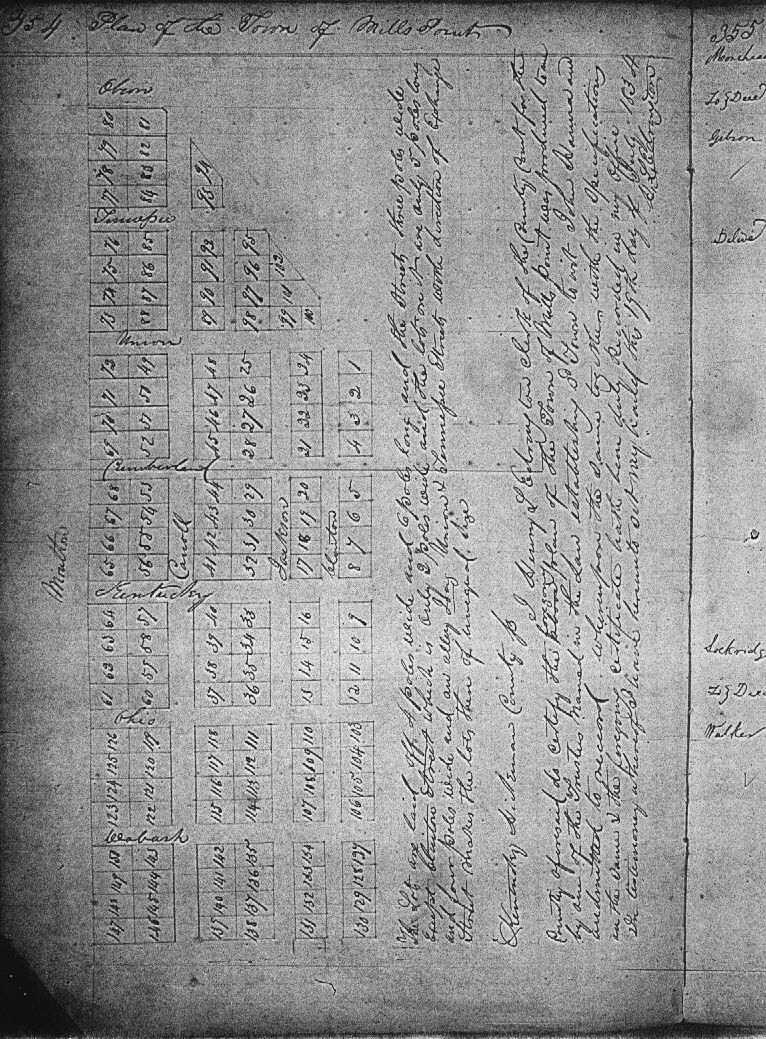 354 Plan of the Town of Mills Point
Obion
80 79 78 77
81 82 83 84
74
73
Tennessee
76 75 74 73
85 86 87 88
92 91 90 89
95 96 97 98
102
99
Union
72 71 70 69
49 50 51 52
48 47 46 45
25 26 27 28
24 23 22 21
1 2 3 4
Cumberland
68 67 66 65
53 54 55 56
Carroll
44 43 42 41
29 30 31 32
Jackson
20 19 18 17
Clinton
5 6 7 8
Moulton
Kentucky
64 63 62 61
57 58 59 60
40 39 38 37
33 34 35 36
16 15 14 13
9 10 11 12
Ohio
126 125 124 123
119 120 121 122
118 117 116 115
111 112 113 114
110 109 108 107
103 104 105 106
Wabash
150 149 148 147
143 144 145 146
142 141 140 139
135 136 137 138
134 133 132 131
127 128 129 130
The Lots are laid off 4 poles wide and 6 poles long and the Streets three poles wide
except Clinton Street which is only 2 poles wide and the lots on it are only 5 poles long
and four poles wide and an alley They Union & Tennessee Streets with direction of Exchange
Street makes the lots then of unequal size
Kentucky Hickman County Sct I Henry L Edrington clerk of the County Court for the
County aforesaid do certify the foregoing plan of the Town of Mills point was produced to me
by one of the Trustees named in the Law establishing Town to wit John Hanna and
admitted to record whereupon the same together with the Specifications
on the same & the foregoing certificate hath been duly Recorded in my office
In testimony whereof I have hereunto set my hand this 19th day of 1834
H L Edrington
355
Gibson
Lockridge
Walker